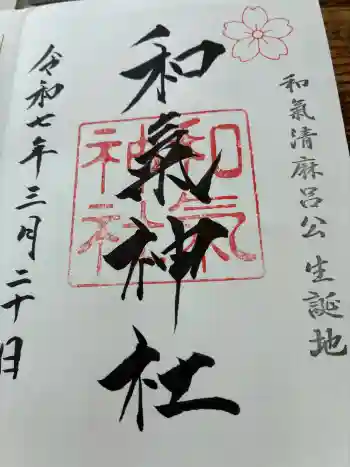 和氣清麻呂公 生誕地
和氣神社
和氣神社
令和七年三月二十日